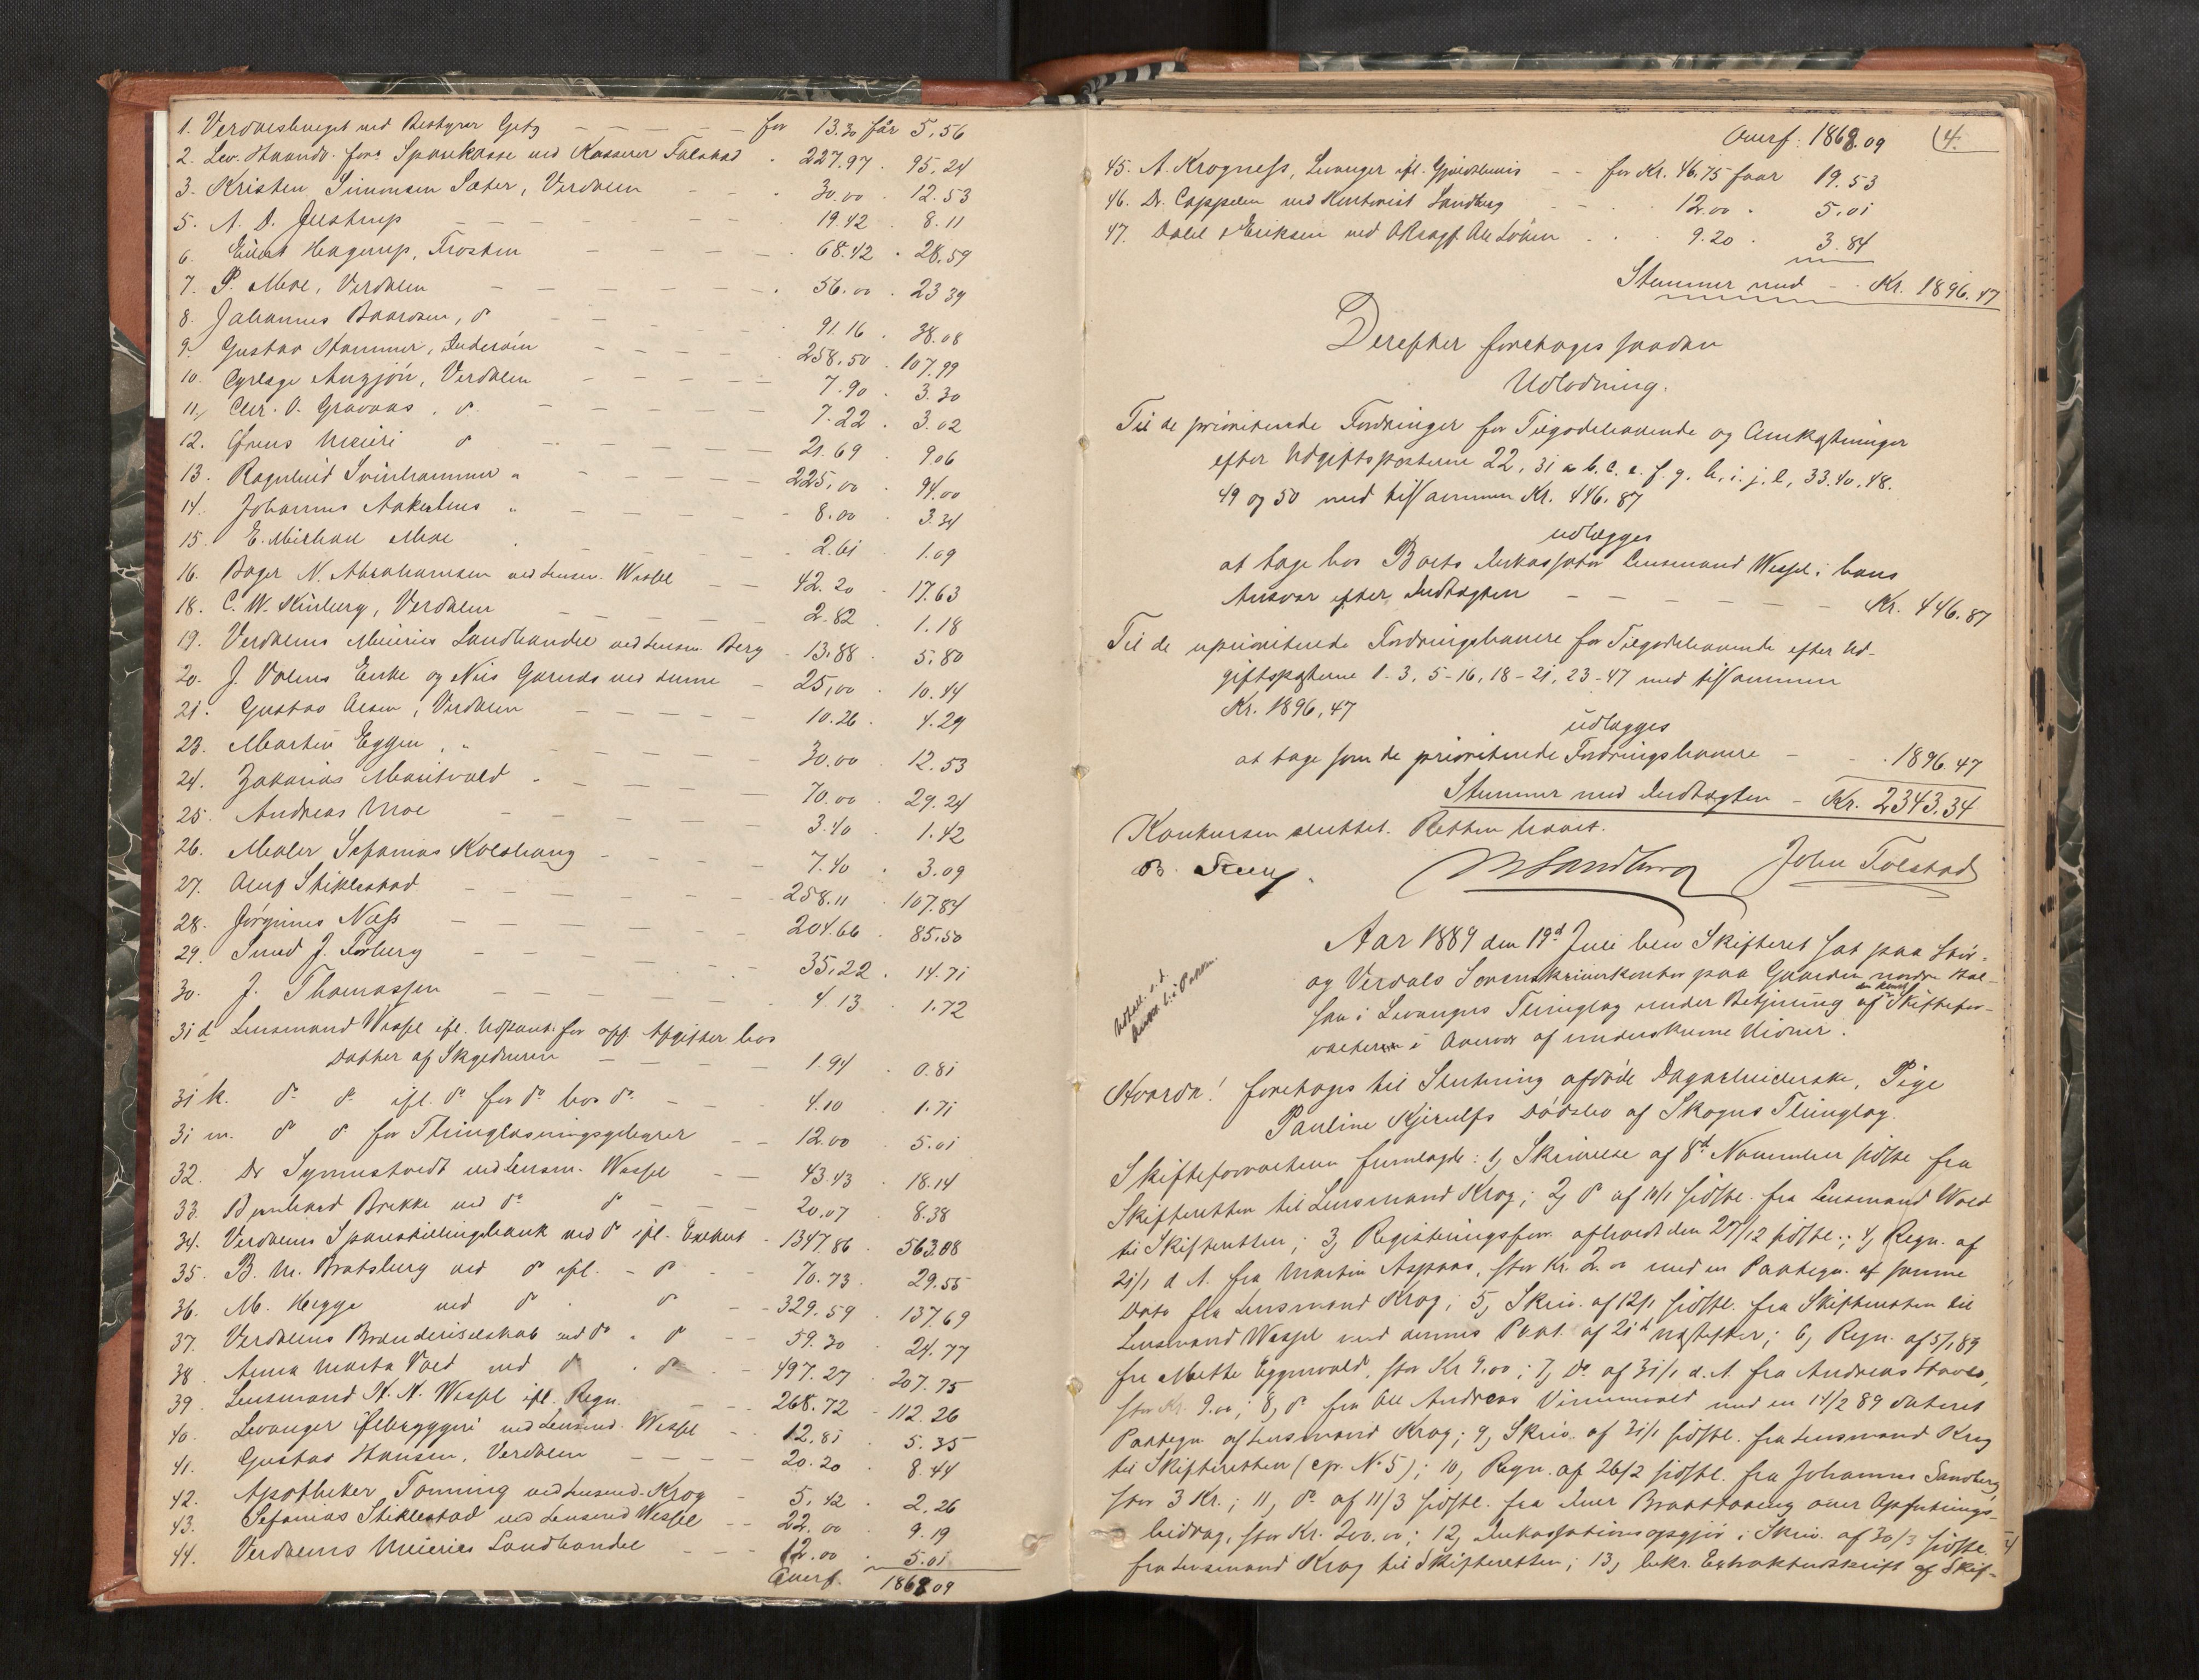 1. Verdalsbruget ved Bestyrer Getz — — — — for 13.30 får 5,56
2. Lev. Haandv. for. Sparekasse ved Kasserer Tolstad . 227.97 . 95.24
3. Kristen Simonsen Sæter, Verdalen — — . 30.00 . 12.53
5. A. D. Justrup — — — — 19.42 . 8.11
6. Eilert Hagerup, Frosten — — — — . 68.42 . 28.59
7. P. Moe, Verdalen — — — — — . 56.00 . 23 39
8. Johannes Baardsen, do — — — — 91.16 . 38.08
9. Gustav Stammer, Inderøen — — — — . 258.50 . 107.99
10. Anzjøn, Verdalen — — — — 7.90 . 3.30
11, Chr. O. Gravaas, do. — — — — 7.22 . 3.02
12. Meieri do — — — — 21.69 . 9.06
13. Ragnhild Svinhammer „ — — — — 225,00 . 94.00
14. Johannes „ — — — — 8.00 . 3.34
15. E. Mikael Moe . — — — — 2.61 . 1.09
16. Bager N. Abrahamsen ved Lensm. Wessel — — 42.20 . 17.63
18. C. W. Kinberg, Verdalen — — — 2.82 . 1.18
19. Verdalens Meieries Landhandel ved Lensm. Berg — 13.88 . 5.80
20. J. Volens Enke og Nils Garnds ved denne — 25,00 . 10.44
21. Gustav Olsen, Verdalen — — — — 10.26 . 4.29
23. Martin Eggen, „ — — — — 30.00 . 12.53
24. Zakarias Maritvold „ — — — — 70.00 . 29.24
25. Andreas Moe — — — — 3.40 . 1.42
26. Maler Sefanias Kolshaug — — — — 7.40 . 3.09
27. Oluf Stiklestad — — — — 258.11 . 107.84
28. Jørginus Næss — — — — 204.66 . 85,50
29. Simed J. Forberg — — — — 35,22 . 14.71
30. J. Thomassen — — — — 4.13 . 1.72
31 d Lensmand Wessel ifl. Udpant. for opp. Afgifter hos
Datter af Skyldneren — — — — 1.94 . 0.81
31 k. do do ifl. do for do hos do. — — 4.10 . 1.71
31 m. do do for Thinglæsningsgebyrer — — 12.00 . 5.01
32. Dr Synnestvedt ved Lensm. Wessel — — 43.43 . 18.14
33. Bernhard Brekke ved do do — — — 20,07 . 8.38
34. Verdalens Spareskillingsbank ved do ifl. Exekut . 1347.86 . 563.08
35. B. M. Bratsberg ved do ifl. — do — — 70.73 . 29.55
36. M. Hegge ved do . do — — 329.59 . 137.69
37. Verdalens Brænderiselskab ved do „ do — — 59.30 . 24.77
38. Anna Marta Vold ved do . do — — 497.27 . 207.75
39. Lensmand K. K. Wessel ifl. Regn. — — 268.72 . 112.26
40. Levanger Ølbryggeri ved Lensmd. Wessel — 12,81 . 5.35
41. Gustav Hansen, Verdalen — — — — 20.20 . 8.44
42. Apotheker Tonning ved Lensmd. Krog — 5.42 . 2.26
43. Sefanias Stiklestad ved Lensmd Wessel — — 22.00 . 9.19
44. Verdalens Meieries Landhandel — — — 12.00 . 5.01
Overf. 1868 09
4.
Overf: 1868.09
45. A. Krogness, Levanger ifl. Gjældsbevis — — for Kr. 46.75 faar 19.53
46. Dr. Cappelen ved Kontorist Sandberg — . 12.00 . 5.01
47. Dahl & Eriksen ved . . . 9.20 . 3.84
Stemmer med — . Kr. 1896.47
Derefter foretages saadan
Udlodning.
Til de prioriterede Fordringer for Tilgodehavende og Omkostninger
efter Udgiftsposterne 22, 31 a b. c. e. f. g. h. i. j. l, 33. 40. 48.
49 og 50 med tilsammen Kr. 446.87
udlægges
at tage hos Boets Inkassator Lensmand Wessel i hans
Ansvar efter Indtægten — — — — — Kr. 446.87
Til de uprioriterede Fordringshavere for Tilgodehavende efter Ud-
giftsposterne 1-3, 5-16, 18-21, 23-47 med tilsammen
Kr. 1896,47
udlægges
at tage som de prioriterede Fordringshavere — — . 1896.47
Stemmer med Indtægten — Kr. 2343.34
Konkursen sluttet. Retten hævet.
MSandberg John Tolstad
Aar 1889 den 19d Juli blev Skifteret sat paa Stør-
og Verdals Sorenskriverkontor paa Gaarden nordre Hal-
san i Levangers Thinglag under Betjening af den konst. Skiftefor-
valteren i Overvær af underskrevne Vidner.
Hvorda! foretoges til Slutning afdøde Dagarbeiderske, Pige
Pauline Kjerulfs Dødsbo af Skogns Thinglag.
Skifteforvalteren fremlagde: 1, Skrivelse af 8d November sidste fra
Skifteretten til Lensmand Krog; 2, do af 10/1 sidstl. fra Lensmand Wold
til Skifteretten; 3, Registreringsforr. afholdt den 27/12 sidstl.; 4, Regn. af
21/1 d. A. fra Martin Aspaas, stor Kr. 2.00 med en Paategn. af samme
Dato fra Lensmand Krog; 5, Skriv. af 12/1 sidstl. fra Skifteretten til
Lensmand Wessel med dennes Paat. af 21d næstefter; 6, Regn. af 5/1 89
fra Mette Eggenvold, stor Kr 9.00; 7, Do af 31/1 d. A. fra Andreas Haves,
stor Kr. 9.00; 8, do fra Ole Andreas Vinnevold med en 14/2 89 dateret
Paategn af Lensmand Krog; 9, Skriv. af 31/1 sidstl. fra Lensmand Krog
til Skifteretten (cfr. No 5); 10, Regn. af 26/2 sidstl. fra Johannes Sandberg,
stor 3 Kr.; 11, do af 11/3 sidstl. fra over Opfostrings-
bidrag, stor Kr. 200.00; 12, Inkassationsopgjør i Skriv. af 30/3 sidstl.
fra Lensmand Krog til Skifteretten; 13, bekr. Extraktudskrift af Skif-